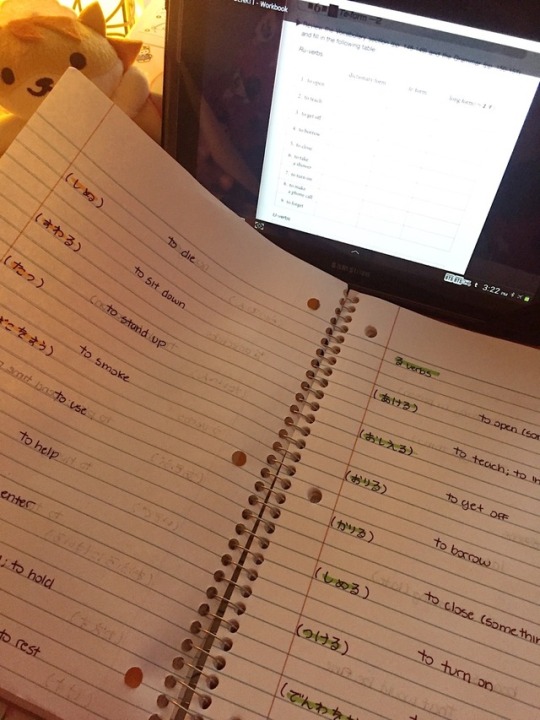 Workbook
and fill in the following table
Ru-verbs
1. to open
2. to teach
3. to get off
4. to borrow
5. to close
6. to take
a shower
7. to turn on
8. to make
a phone call
9. to forget
U-verbs
3:22 PM
(しぬ) to die
(すわる) to sit down
(たつ) to stand up
to smoke
to use
to help
enter
; to hold
to rest
る verbs
(あける) to open (so
(おしえる) to teach; to in
(おりる) to get off
(かりる) to borrow
(しめる) to close (somethin
(つける) to turn on
(でんわを